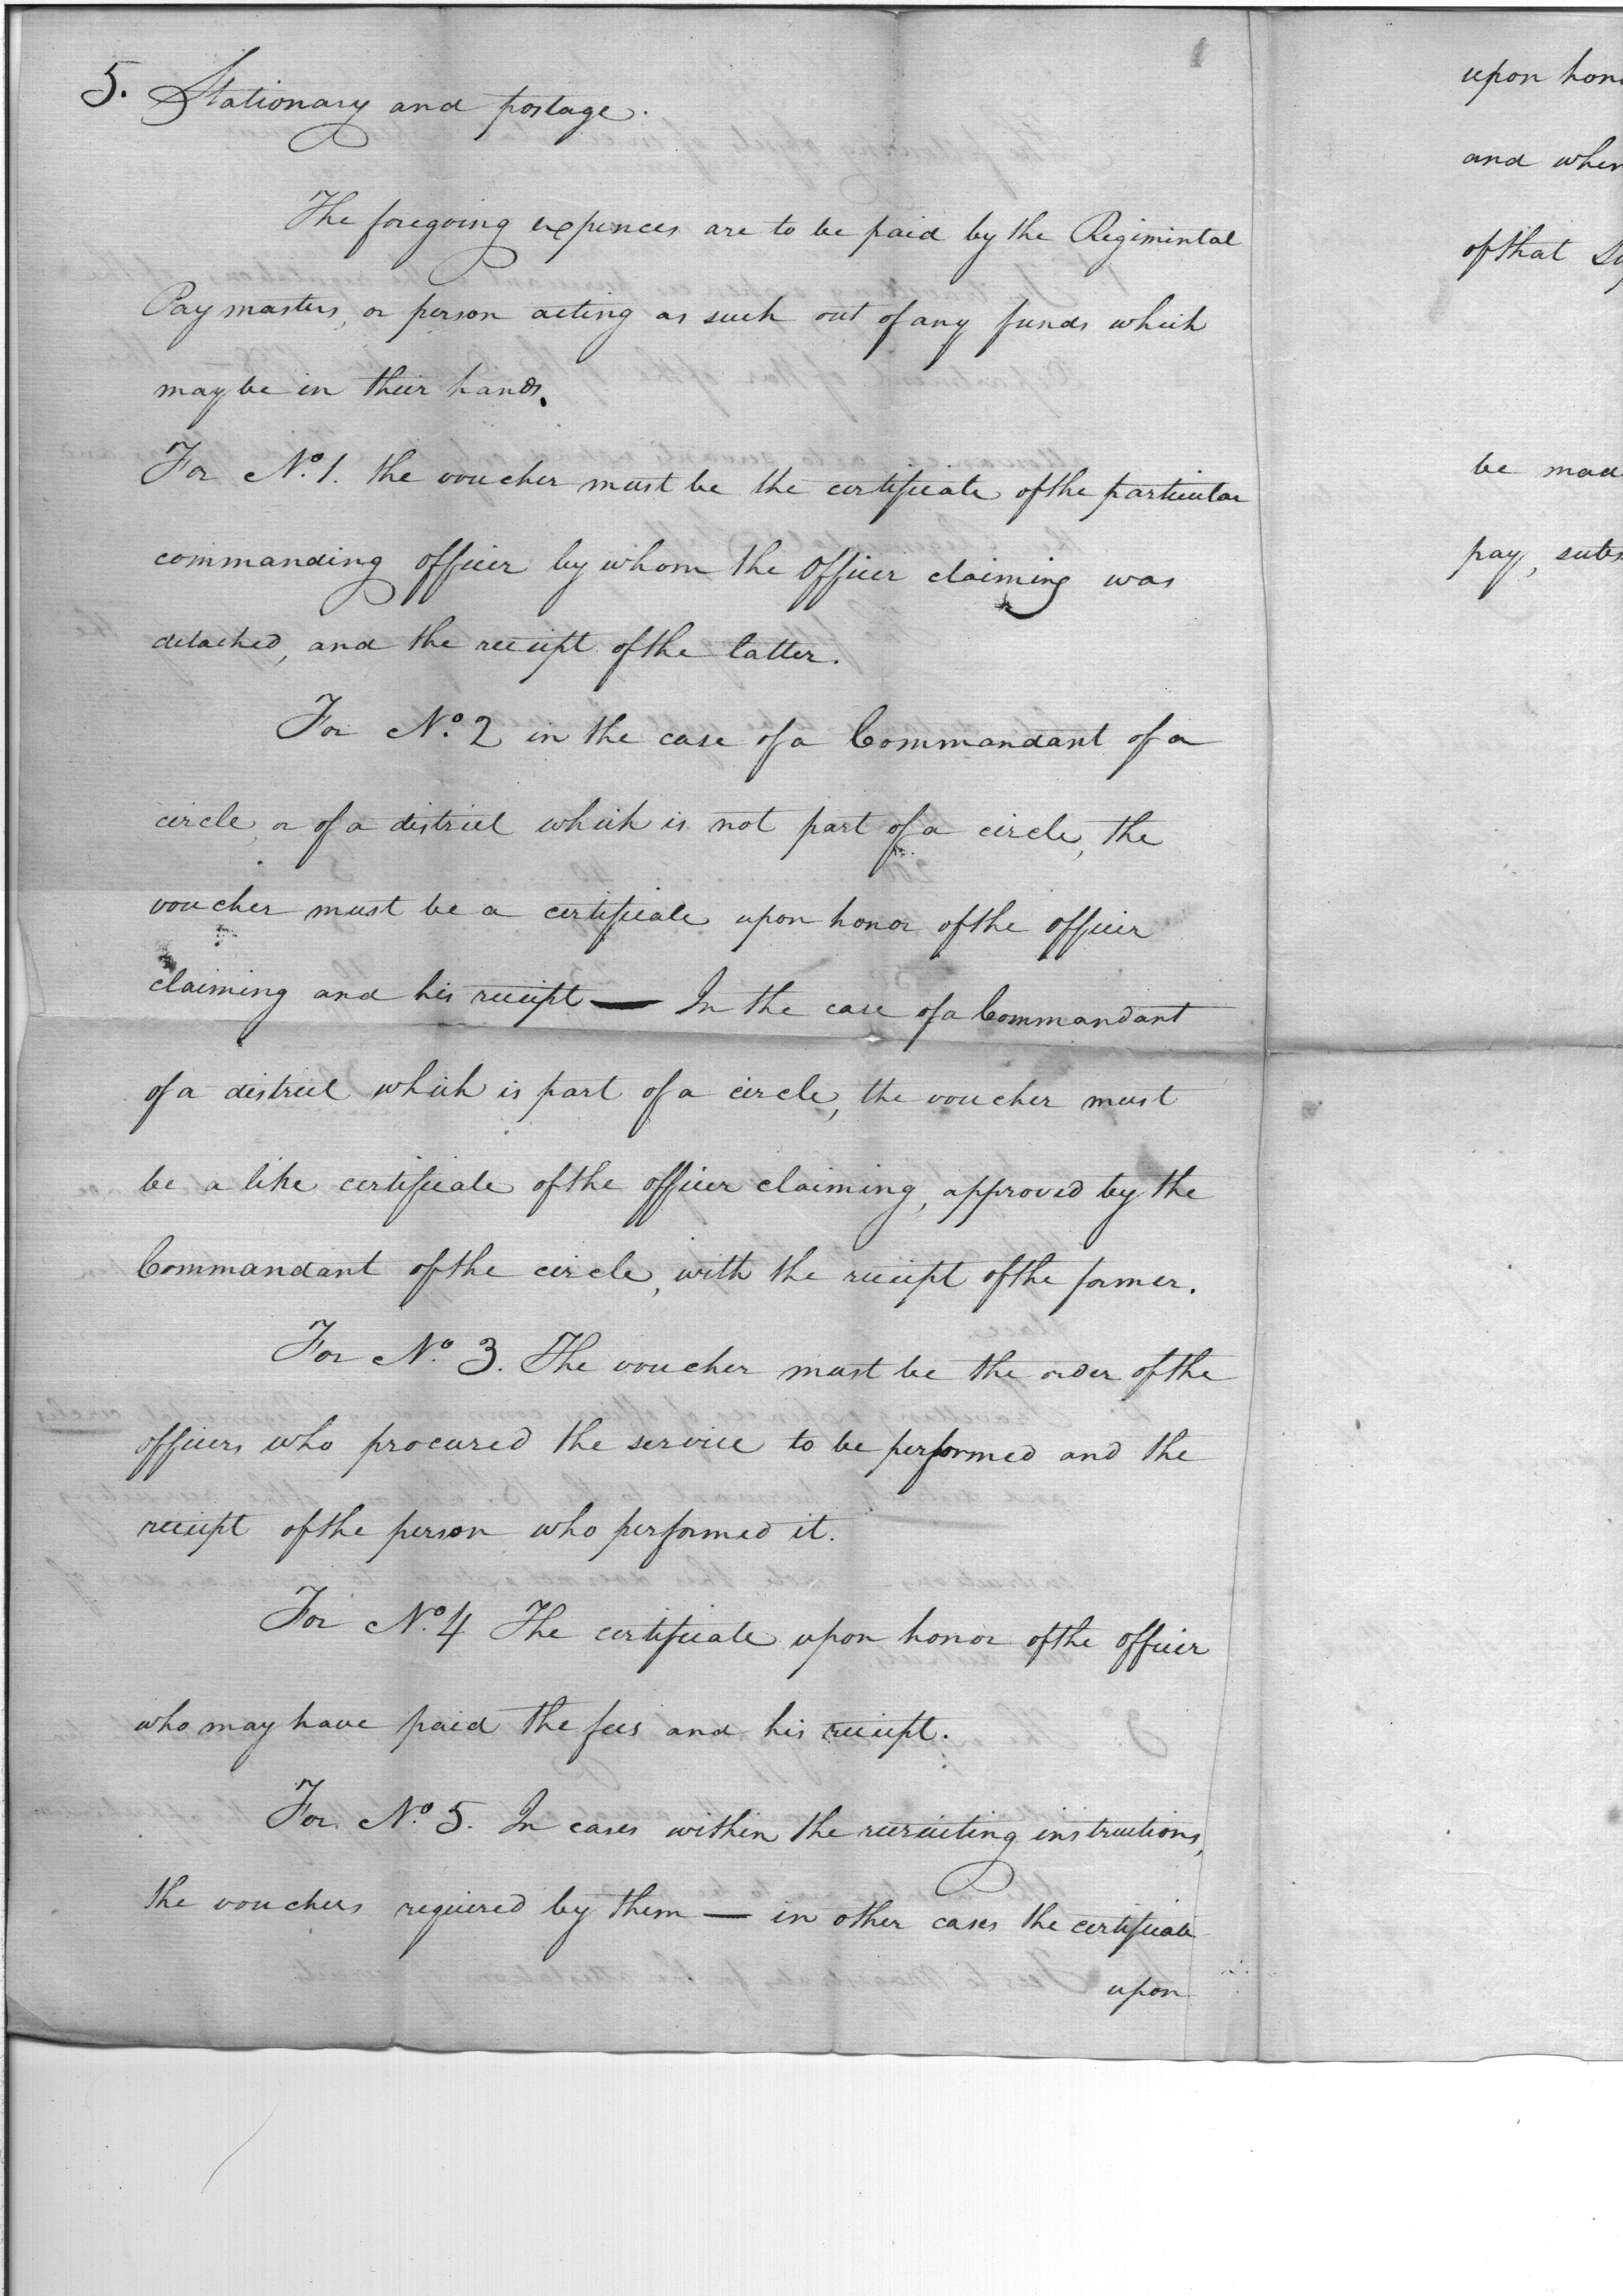 5. Stationary and postage.
The foregoing expences are to be paid by the Regimental
Paymasters, or person acting as such out of any funds which
may be in their hands.
For No. 1. the voucher must be the certificate of the particular
commanding officer by whom the officer claiming was
detached, and the receipt of the latter.
For No. 2 in the case of a Commandant of a
circle, or of a district which is not part of a circle, the
voucher must be a certificate upon honor of the officer
claiming and his receipt — In the case of a Commandant
of a district which is part of a circle, the voucher must
be a like certificate of the officer claiming, approved by the
Commandant of the circle, with the receipt of the former.
For No. 3. The voucher must be the order of the
officers who procured the service to be performed and the
receipt of the person who performed it.
For No. 4 The certificate upon honor of the officer
who may have paid the fees and his receipt.
For No. 5. In cases within the recruiting instructions,
the vouchers required by them — in other cases the certificate
upon
upon hon
and when
of that
be mad
pay, subs